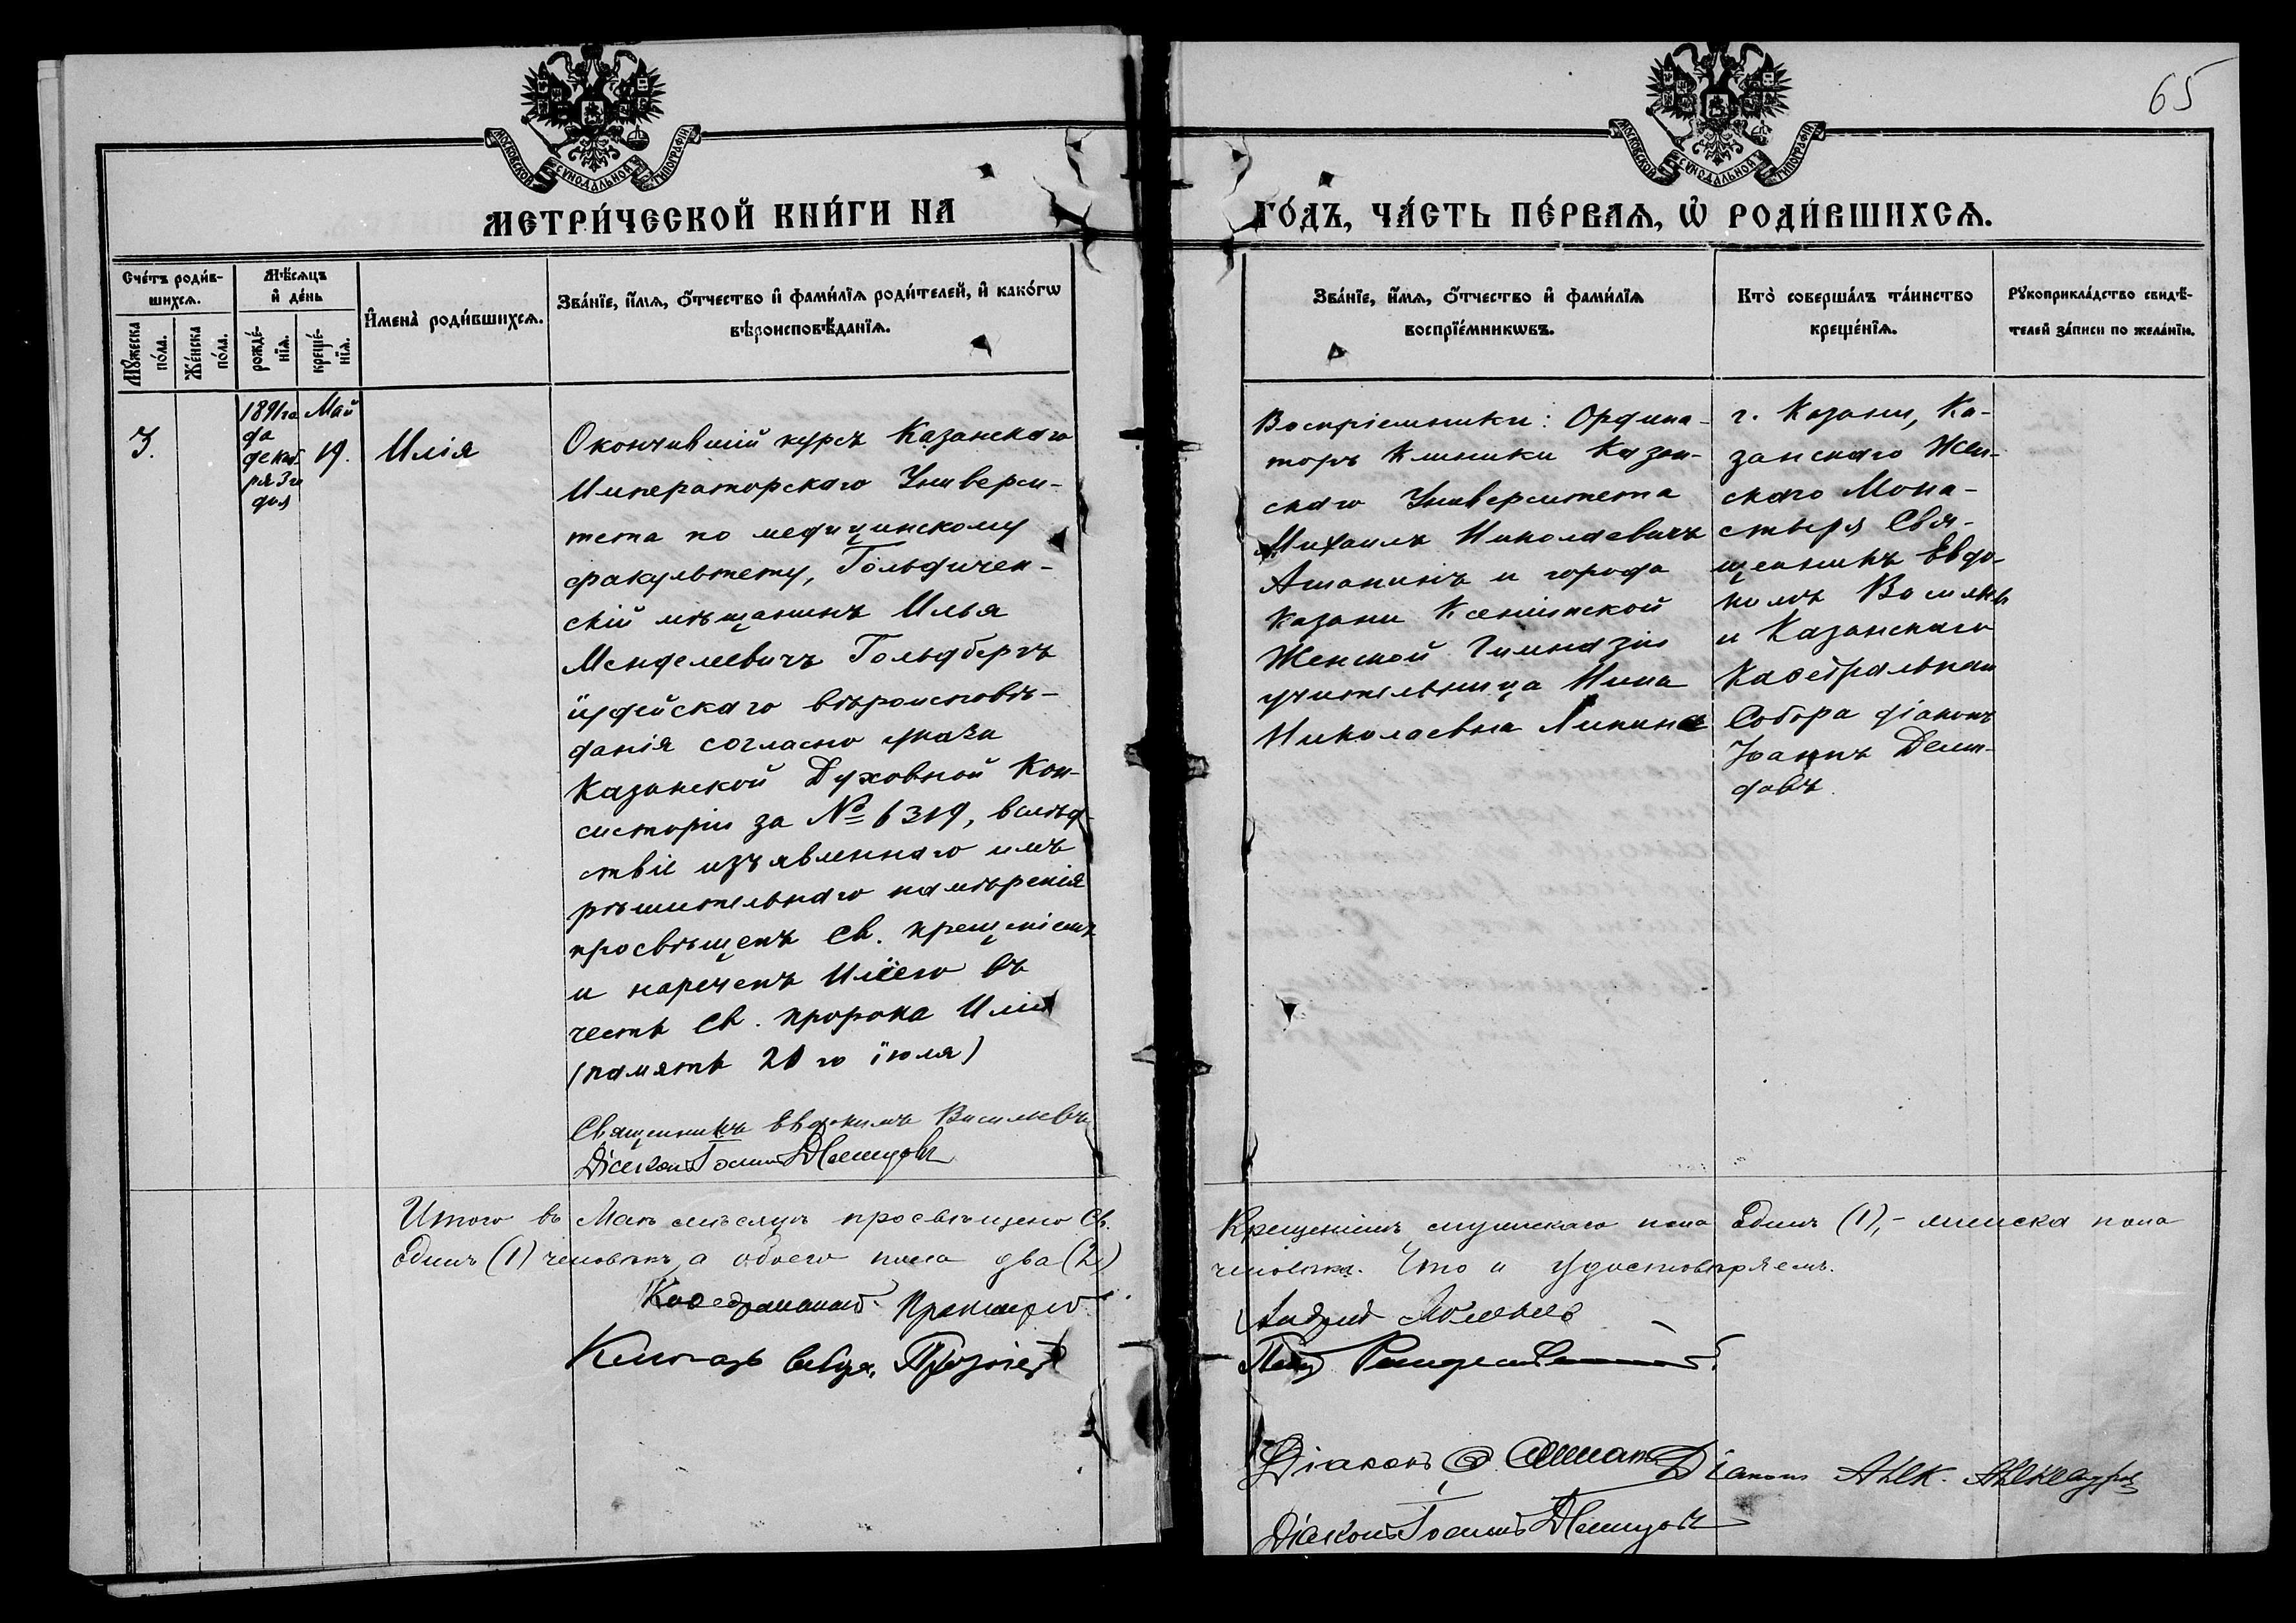 65
МОСКОВСКОЙ СѴНОДАЛЬНОЙ ТИПОГРАФІИ
МОСКОВСКОЙ СѴНОДАЛЬНОЙ ТИПОГРАФІИ
МЕТРИ́ЧЕСКОЙ КНИ́ГИ НА
ГО́ДЪ, ЧА́СТЬ ПЕ́РВАѦ, Ѡ҆ РОДИ́ВШИХСѦ.
Сче́тъ роди́в-
шихсѧ.
Мꙋ́жеска по́ла.
Же́нска по́ла.
Мѣ́сѧцъ
и҆ де́нь
рожде́-
нїѧ.
креще́-
нїѧ.
И҆мена̀ роди́вшихсѧ.
Зва́нїе, и҆́мѧ, ѻ҆́тчество и҆ фами́лїѧ роди́телей, и҆ како́гѡ
вѣроисповѣ́данїѧ.
Зва́нїе, и҆́мѧ, ѻ҆́тчество и҆ фами́лїѧ
воспрїе́мникѡвъ.
Кто̀ соверша́лъ та́инство
креще́нїѧ.
Рꙋкоприкла́дство свидѣ́-
телей за́писи по жела́нїю.
3.
1891 го
да
декаб-
ря 3 го
дня
Май
19.
Илія
Окончившій курсъ Казанскаго
Императорскаго Универси-
тета по медицинскому
факультету, Гольдинген-
скій мѣщанинъ Илья
Менделевичъ Гольдбергъ
іудейскаго вѣроисповѣ-
данія согласно указа
Казанской Духовной Кон-
систоріи за № 6319, вслѣд-
ствіе изъявленнаго имъ
рѣшительнаго намѣренія
просвѣщенъ Св. крещеніемъ
и нареченъ Иліею въ
честь Св. пророка Иліи
(память 20 го іюля)
Священникъ Евдокимъ Васильевъ
Діаконъ Іоаннъ Демидовъ
Воспріемники: Ордина-
торъ Клиники Казан-
скаго Университета
Михаилъ Николаевичъ
Ашанинъ и города
Казани Ксенинской
Женской Гимназіи
учительница Нина
Николаевна Липина
г. Казани, Ка-
занскаго Жен-
скаго Мона-
стыря Свя-
щенникъ Евдо-
кимъ Васильевъ
и Казанскаго
Каѳедральнаго
Собора діаконъ
Іоаннъ Деми-
довъ.
Итого въ Маѣ мѣсяцѣ просвѣщено Св.
Крещеніемъ мужскаго пола Одинъ (1), - женска пола
Одинъ (1) человѣкъ, а обоего пола два (2)
человѣка. Что и удостовѣряемъ.
Каѳедральный Протоіерей
Андрей
Ключарь
Діаконъ
Діаконъ Алек. Александров
Діаконъ Іоаннъ Демидовъ